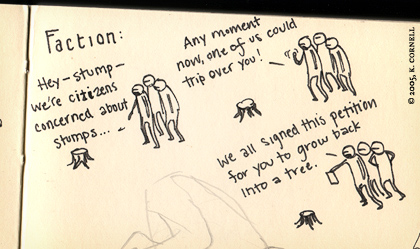 Faction:
Hey-stump-
we're citizens
concerned about
stumps...
Any moment
now, one of us could
trip over you!
We all signed this petition
for you to grow back
into a tree.
© 2005, K. CORNELL